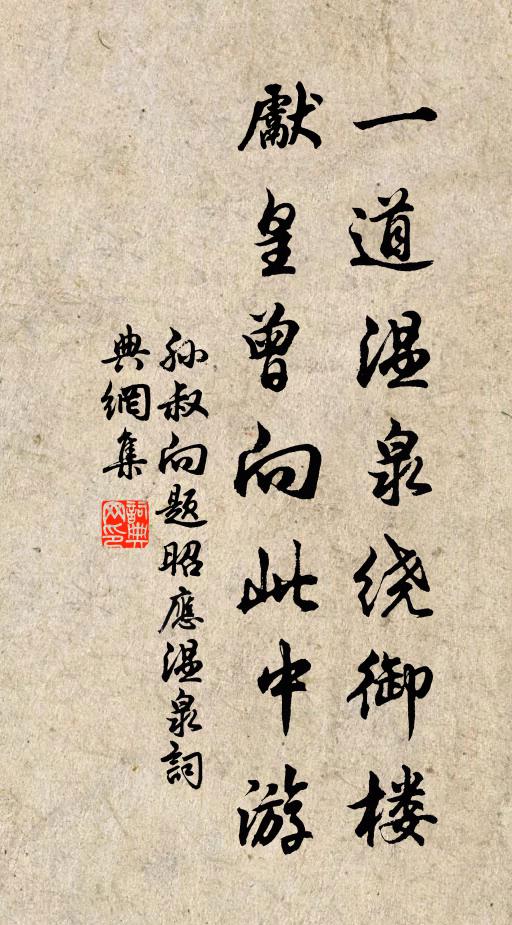 一道温泉绕御楼
獻皇曾向此中游
孫叔向题昭應温泉詞
典網集
詞典
网印